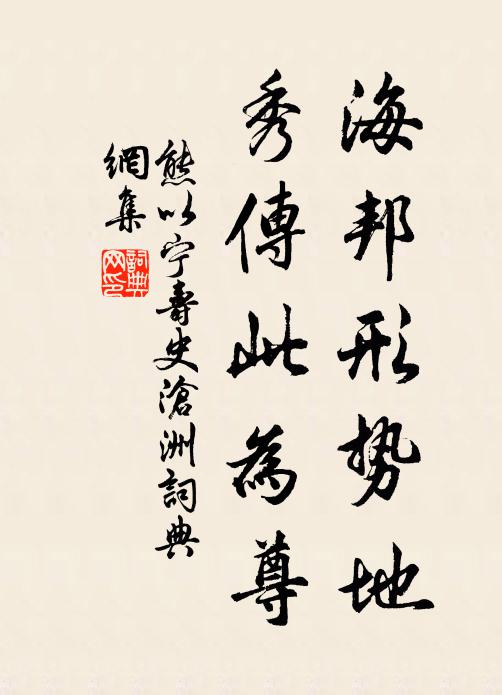 海邦形势地
秀傳此為尊
熊以宁壽史滄洲詞典
網集
詞典
网印